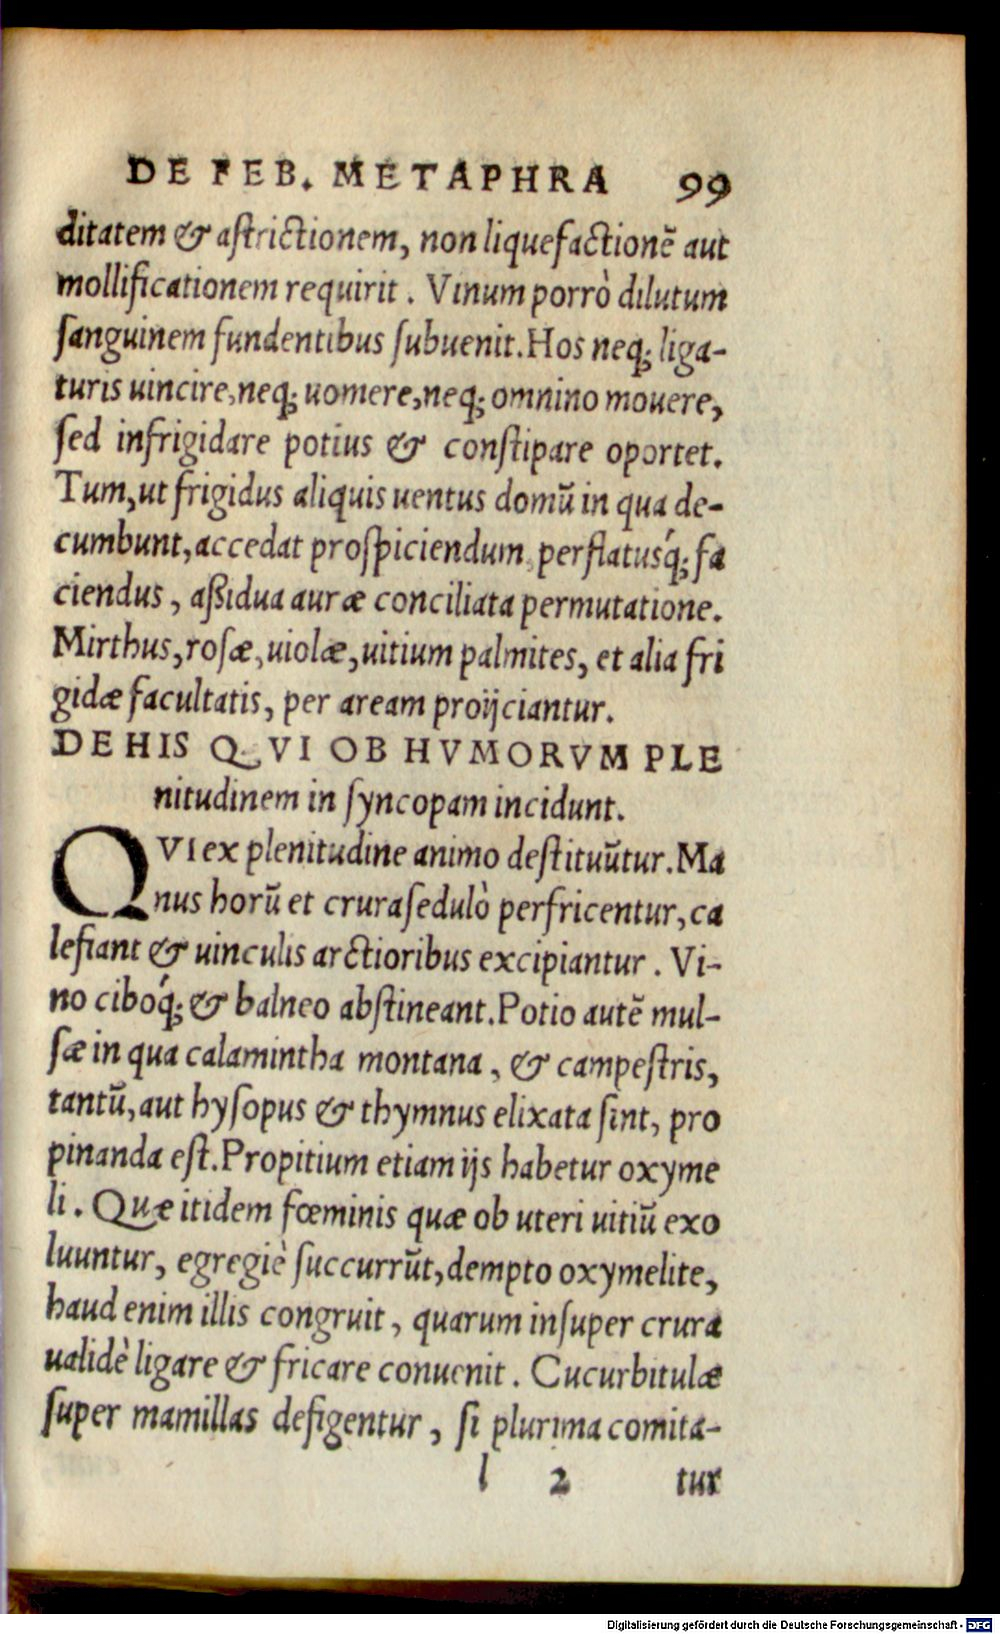 DE FEB. METAPHRA 99
ditatem & astrictionem, non liquefactionē aut
mollificationem requirit. Vinum porrò dilutum
sanguinem fundentibus subuenit. Hos neq; liga-
turis uincire, neq; uomere, neq; omnino mouere,
sed infrigidare potius & constipare oportet.
Tum, ut frigidus aliquis uentus domū in qua de-
cumbunt, accedat prospiciendum, perflatusq́; fa
ciendus, assidua auræ conciliata permutatione.
Mirthus, rosæ, uiolæ, uitium palmites, et alia fri
gidæ facultatis, per aream proijciantur.
DE HIS QVI OB HVMORVM PLE
nitudinem in syncopam incidunt.
QVI ex plenitudine animo destituūtur. Ma
nus horū et crura sedulò perfricentur, ca
lefiant & uinculis arctioribus excipiantur. Vi-
no ciboq́; & balneo abstineant. Potio autē mul-
sæ in qua calamintha montana, & campestris,
tantū, aut hysopus & thymnus elixata sint, pro
pinanda est. Propitium etiam ijs habetur oxyme
li. Quæ itidem fœminis quæ ob uteri uitiū exo
luuntur, egregiè succurrūt, dempto oxymelite,
haud enim illis congruit, quarum insuper crura
ualidè ligare & fricare conuenit. Cucurbitulæ
super mamillas defigentur, si plurima comita-
l 2 tur
Digitalisierung gefördert durch die Deutsche Forschungsgemeinschaft - DFG